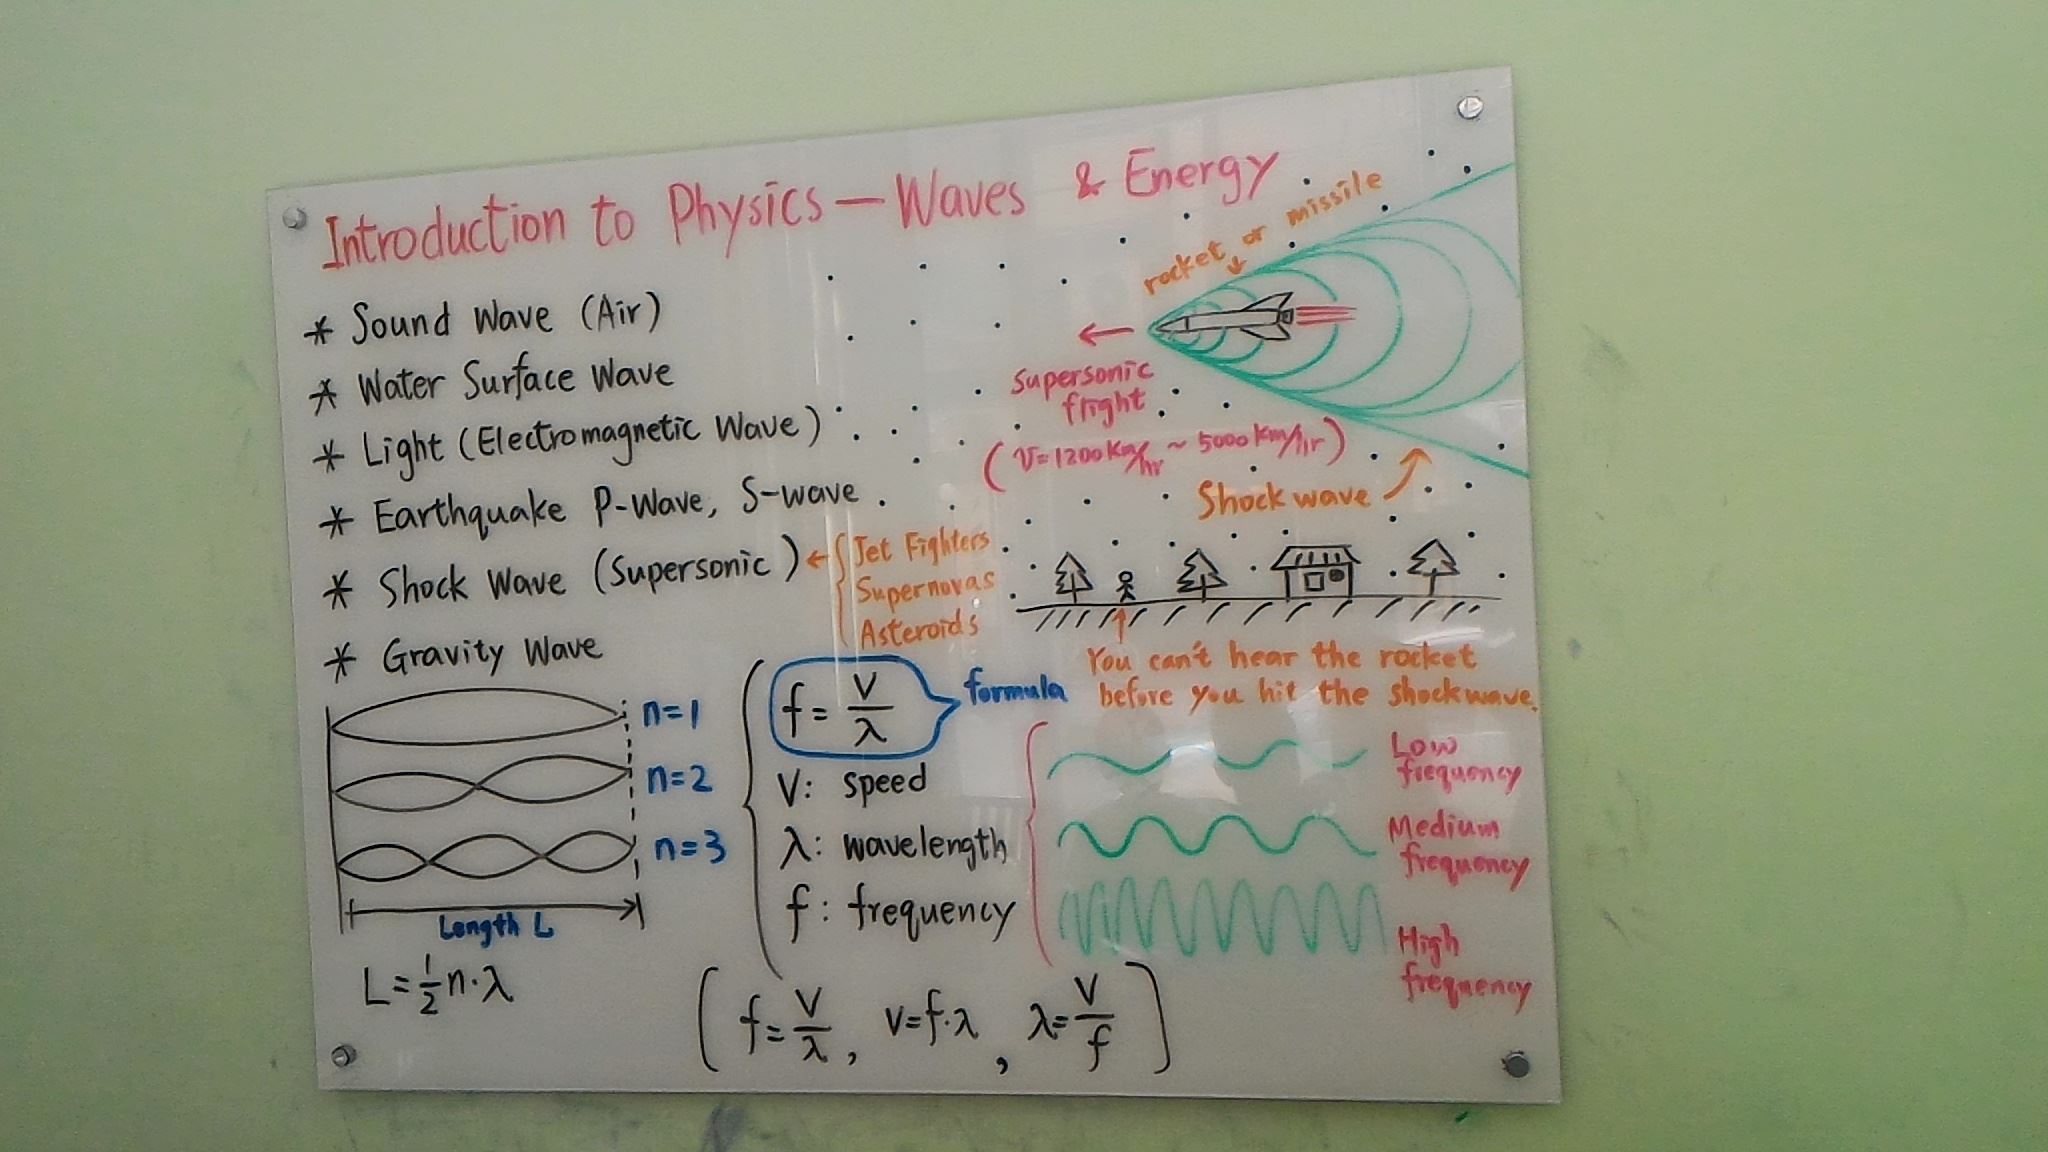 Introduction to Physics — Waves & Energy
* Sound Wave (Air)
* Water Surface Wave
* Light (Electromagnetic Wave)
* Earthquake P-Wave, S-wave
* Shock Wave (Supersonic) ← { Jet Fighters
Supernovas
Asteroids
* Gravity Wave
rocket or missile
← supersonic
flight
(V=1200 Km/hr ~ 5000 Km/hr)
Shock wave
You can't hear the rocket
before you hit the shockwave.
n=1
n=2
n=3
Length L
L=½n·λ
f=V/λ
formula
V: speed
λ: wavelength
f: frequency
Low
frequency
Medium
frequency
High
frequency
(f=V/λ, V=f·λ, λ=V/f)